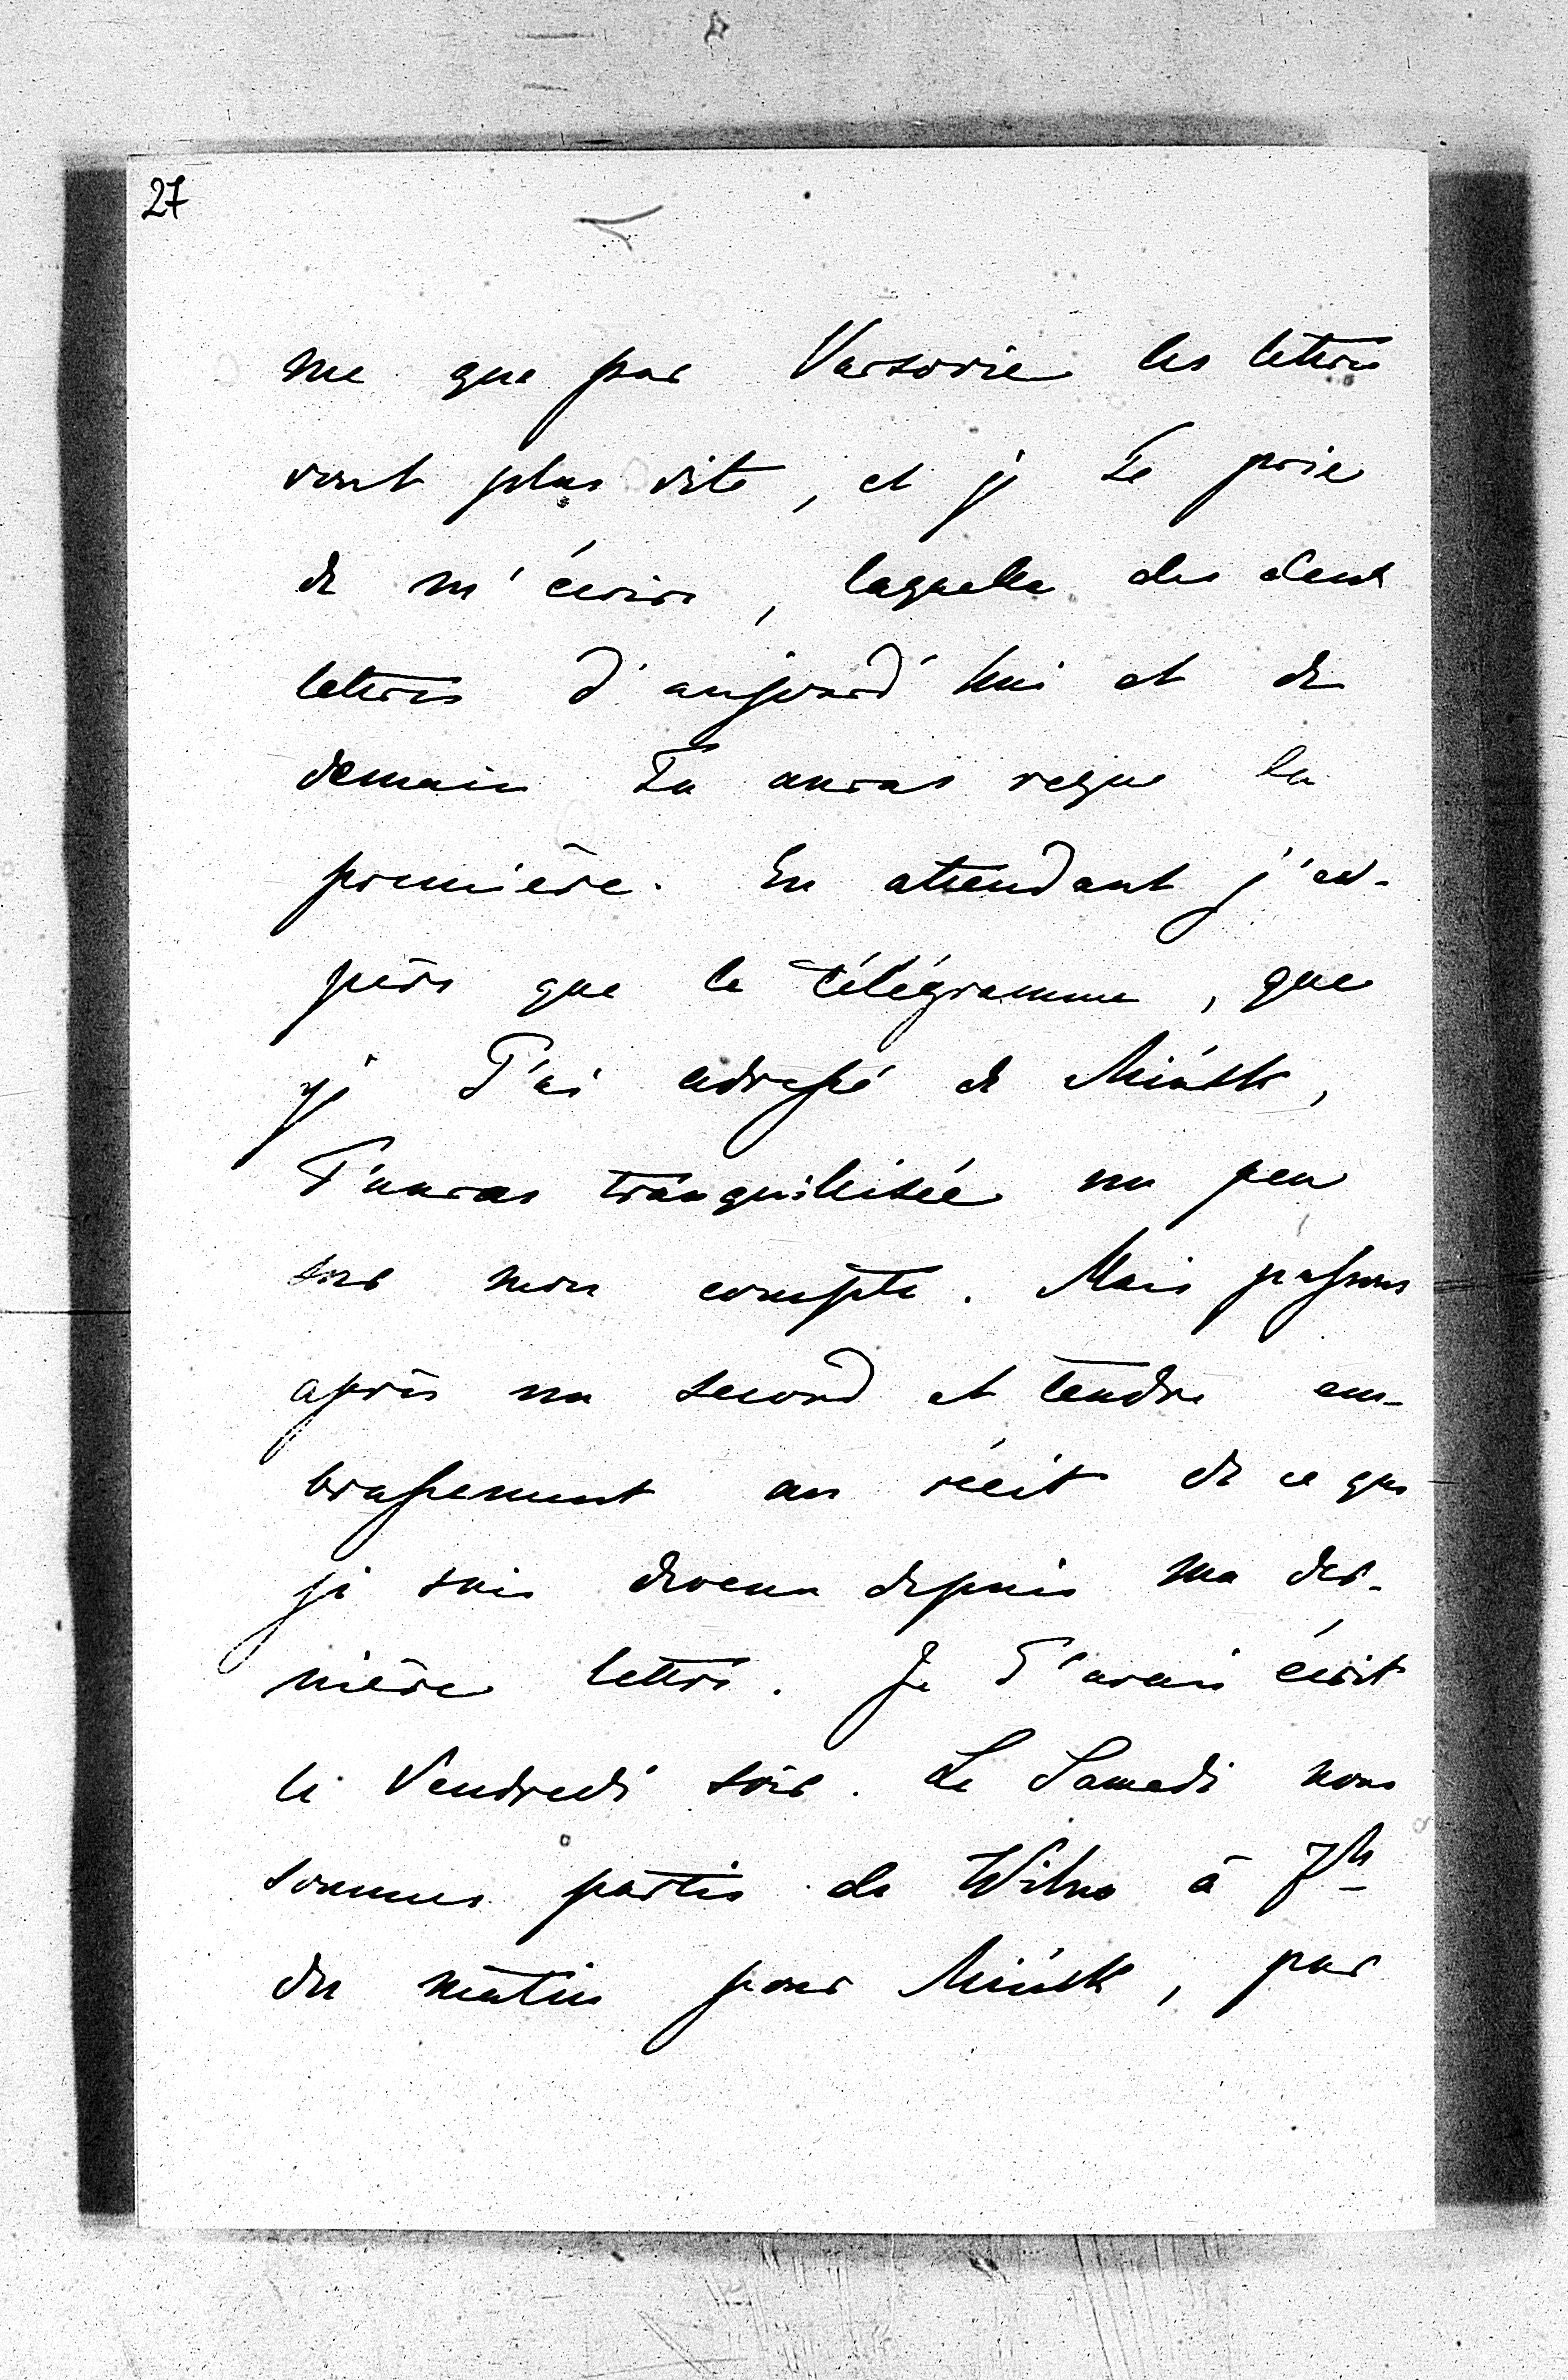 27
me que par Varsovie les lettres
vont plus vite, et je Te prie
de m'écrire, laquelle des deux
lettres d'aujourd'hui et de
demain Tu auras reçue la
première. En attendant j'es-
père que le télégramme, que
je T'ai adressé de Minsk,
T'auras tranquillisée un peu
sur mon compte. Mais passons
après un second et tendre em-
brassement au récit de ce que
je suis devenu depuis ma der-
nière lettre. Je T'avais écrit
le Vendredi soir. Le Samedi nous
sommes partis de Wilno à 7h
du matin pour Minsk, par